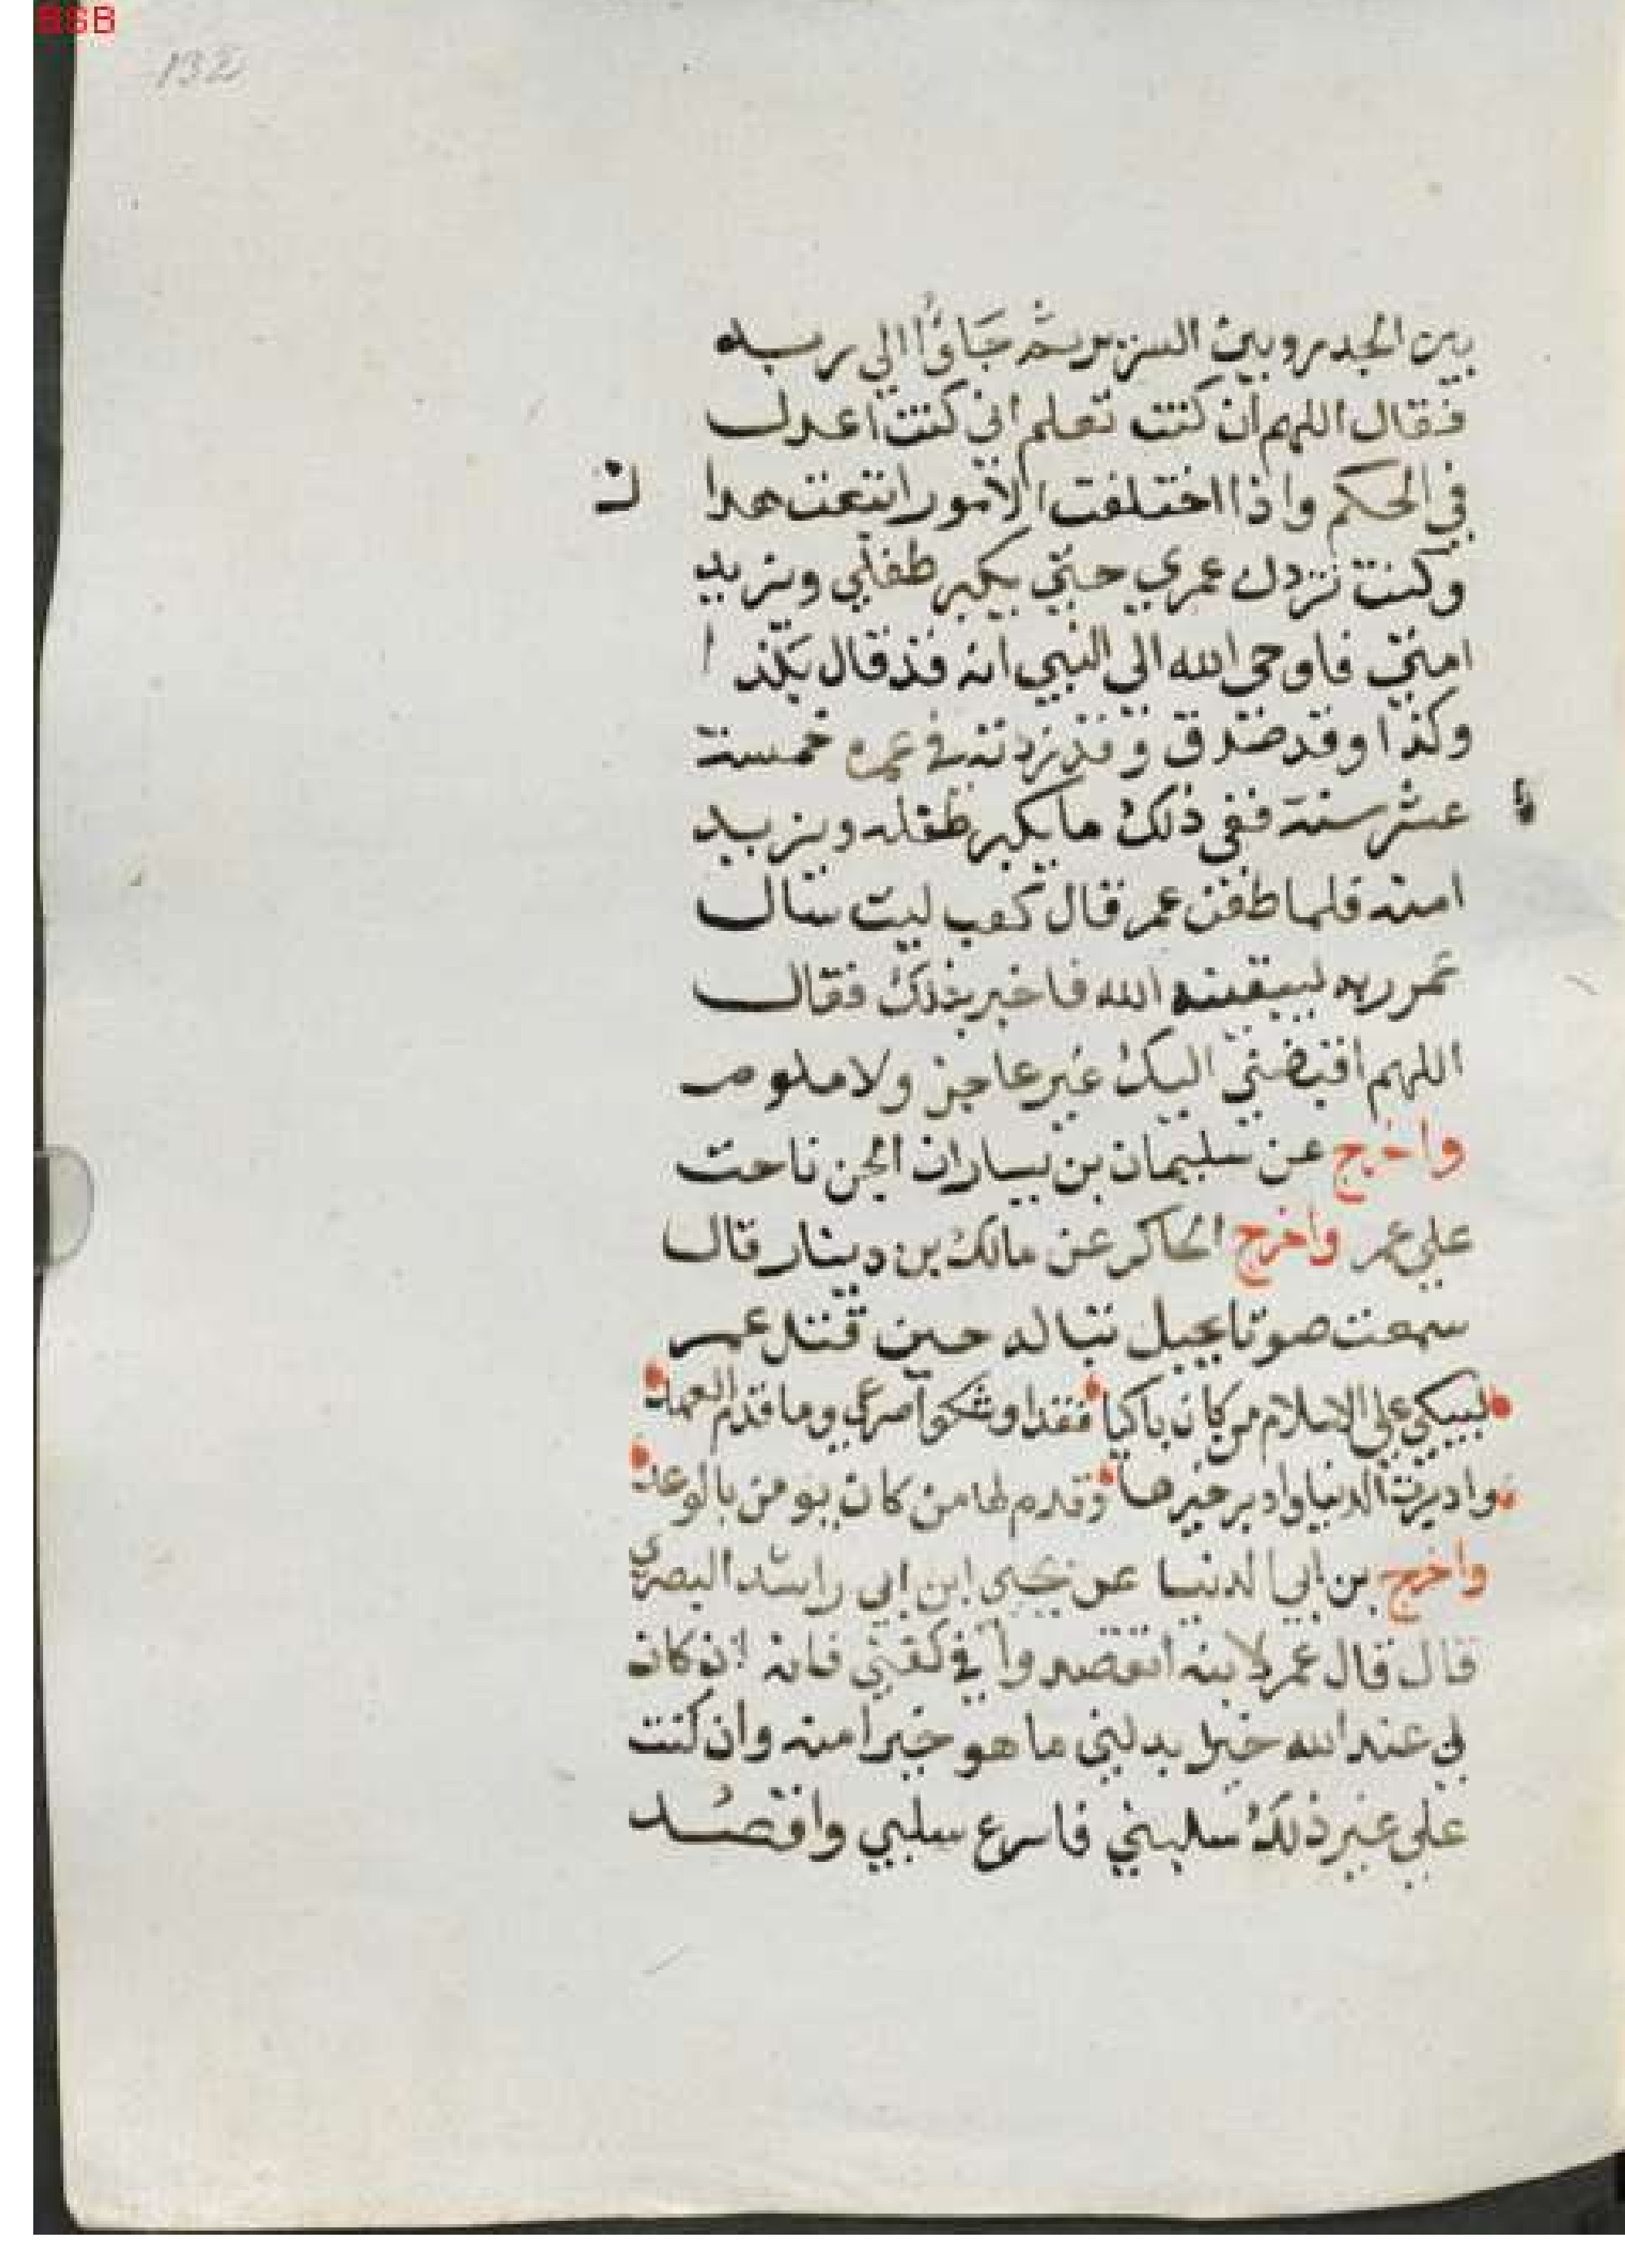 BSB
132
بين الجدر وبين السرير ثم جاوا الى ربه
فقال اللهم ان كنت تعلم اني كنت اعدل
في الحكم واذا اختلفت الامور اتبعت هدا ك
وكنت فزدني عمري حتي يكبر طفلي ويزيد
امتي فاوحي الله الي النبي انه قد قال بكذا
وكذا وقد صدق وقد زدته في عمره خمست
عشر سنة ففي ذلك ما يكبر طفله ويزيد
امته فلما طعن عمر قال كعب ليت سال
عمر ربه ليبقينه الله فاخبر بذلك فقال
اللهم اقبضني اليك غير عاجز ولا ملوم
واخرج عن سليمان بن يسار ان الجن ناحت
علي عمر واخرج الحاكم عن مالك بن دينار قال
سمعت صوتا بجبل تبالة حين قتل عمر
لبيكي علي الاسلام من كان باكيا فقد اوشكوا صرعي وما قدم العهد
وادبرت الدنيا وادبر خيرها وقد ملها من كان يومن بالوعد
واخرج بن ابي الدنيا عن يحيى ابن ابي راشد البصري
قال قال عمر لابنه اقتصدوا في كفني فانه ان كان
لي عند الله خير بدلني ما هو خيرا منه وان كنت
علي غير ذلك سلبني فاسرع سلبي واقتصد